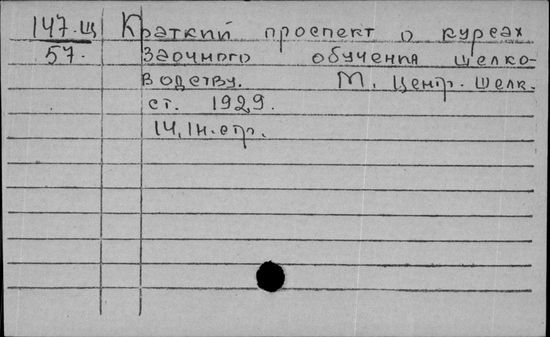 147.Щ Краткий проспект о курсах
57. Заочного обучения шелко-
водству. М. Центр. Шелк.
ст. 1929.
14, 1н. стр.